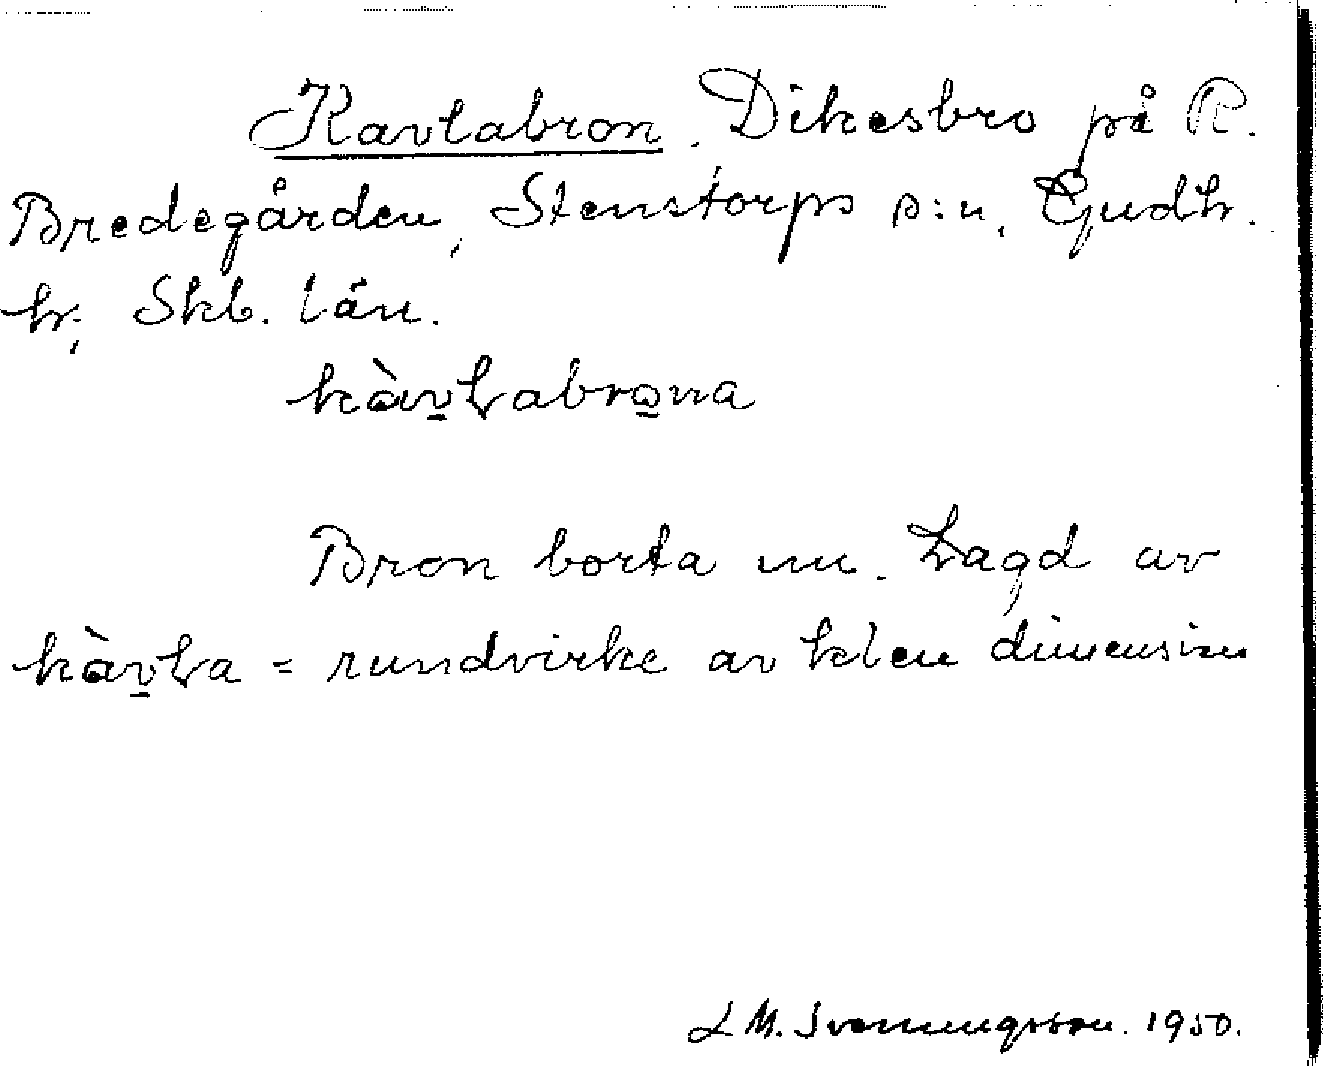 Kavlabron. Dikesbro på R.
Bredegården, Stenstorps s:n, Gudh.
hr, Skb. län.
kàvlabrona
Bron borta nu. Lagd av
kàvla = rundvirke av klen dimension
L M. Svenningsson. 1950.